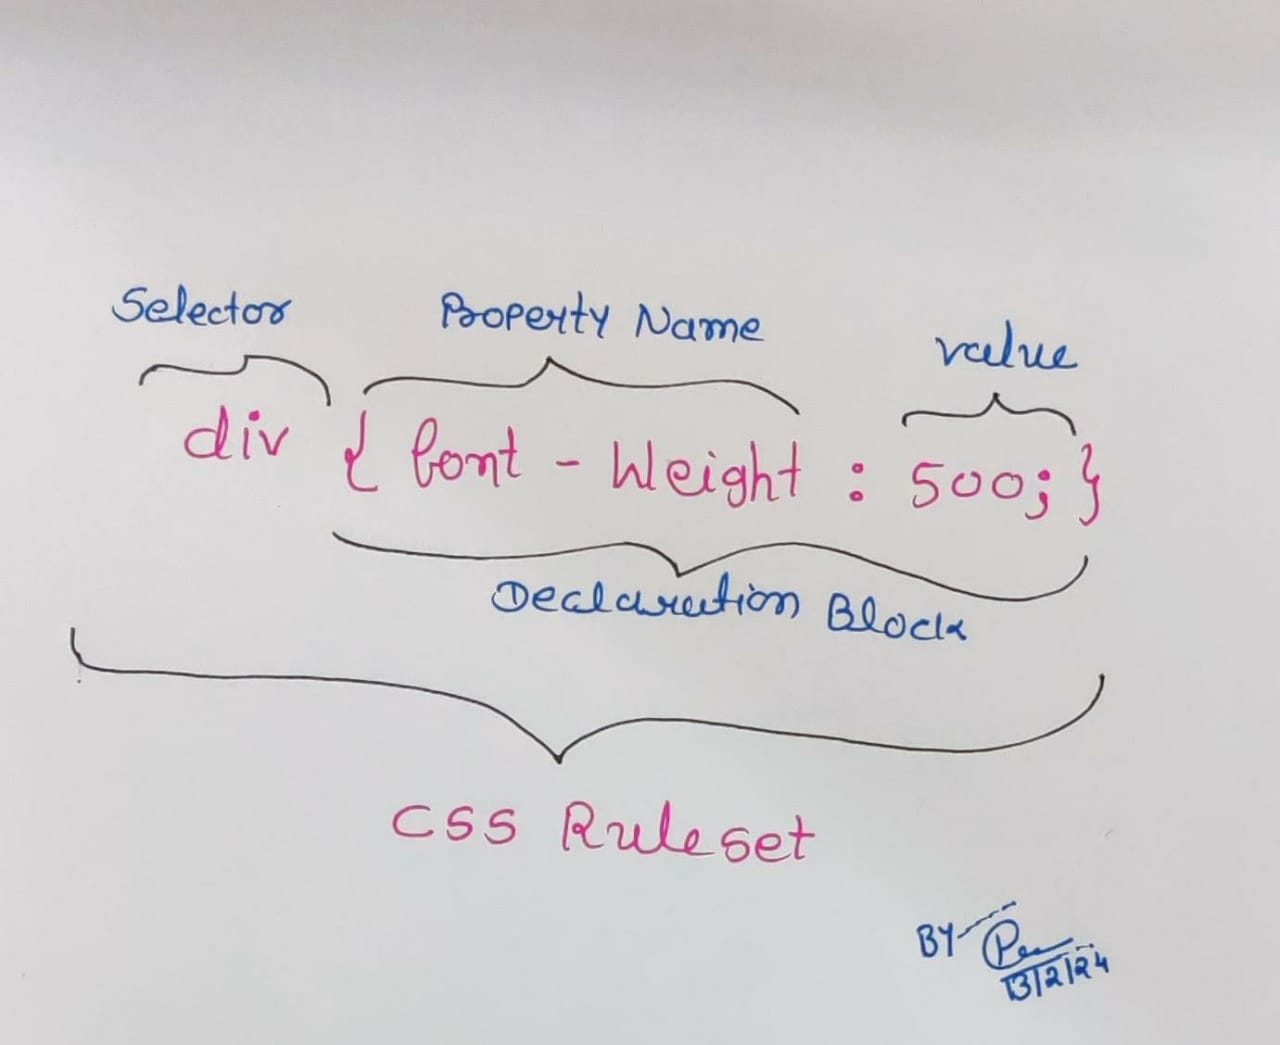 Selector
Property Name
value
div { font - Weight : 500; }
Declaration Block
CSS Ruleset
BY
13/2/24